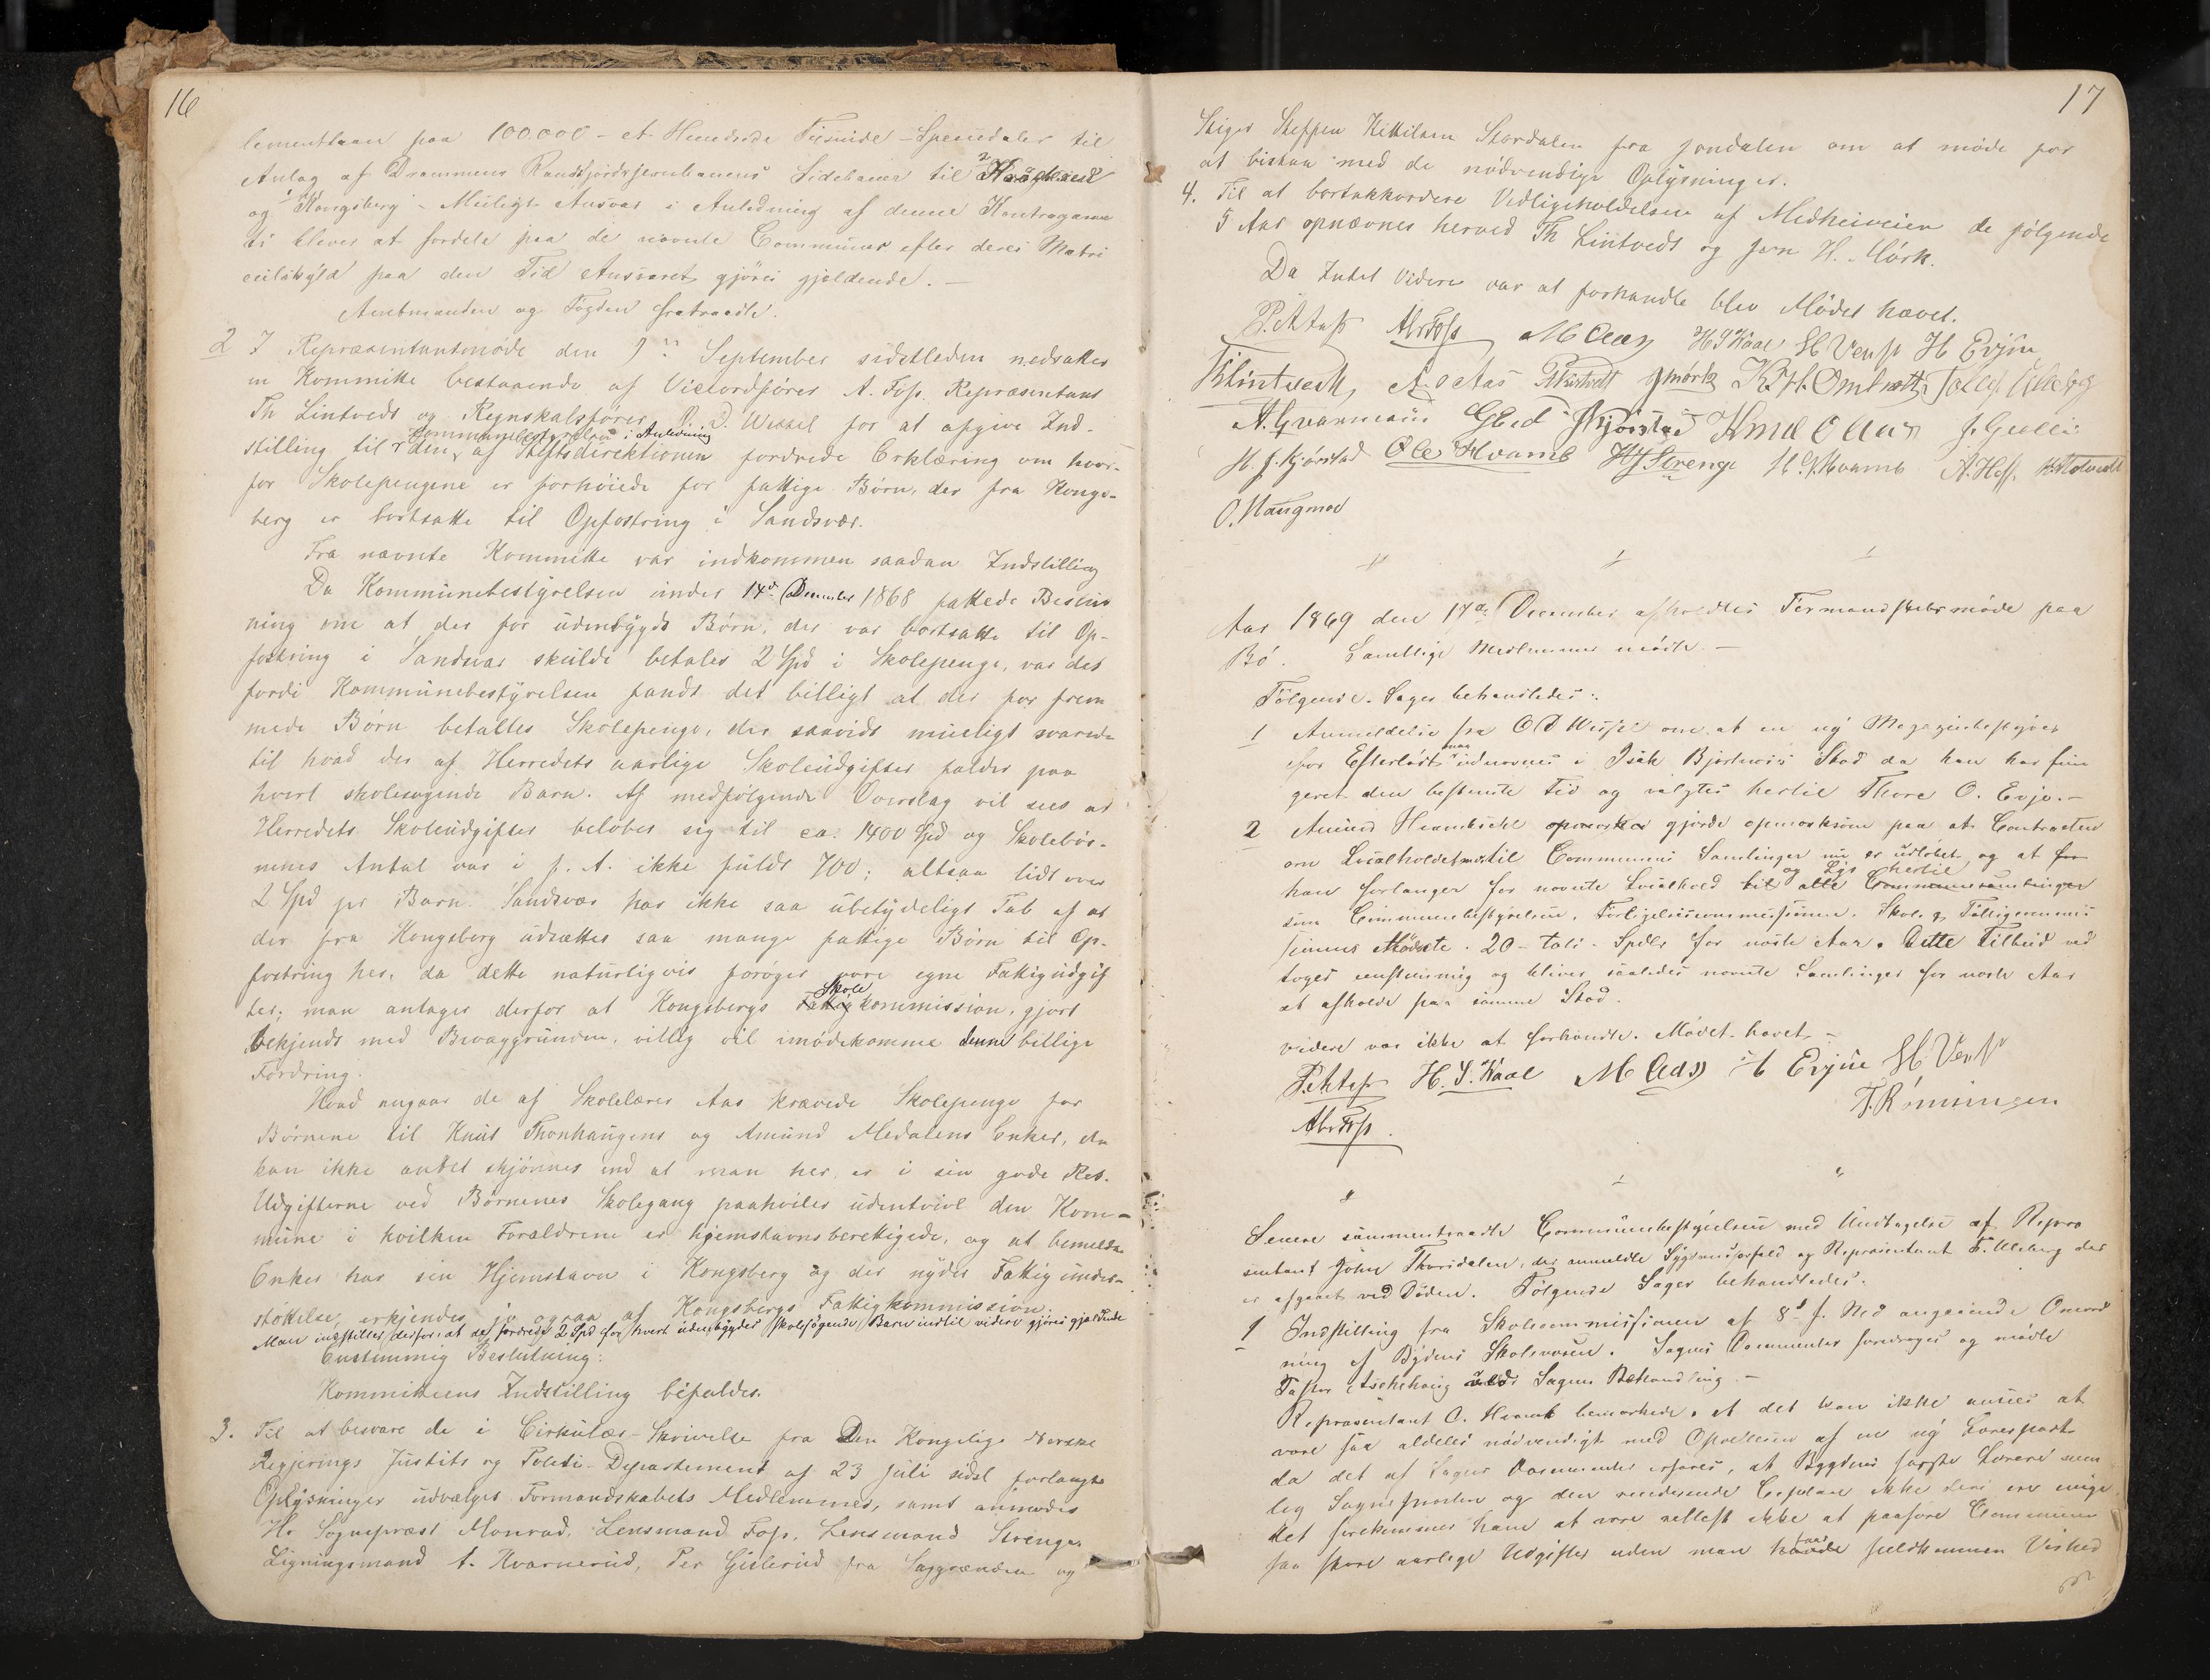 16
lementlaan paa 100.000 – et Hundrede Tusinde – Speciedaler til
Anlag af Drammens Randsfjordsjernbanens Sidebaner til
og Kongsberg – Muligt Ansvar i Anledning af denne Kontragaran
ti bliver at fordele paa de nævnte Communer efter deres Matri
culskyld paa den Tid Ansvaret gjöres gjeldende. –
Amtmanden og Fogden fratraadte.
2 I Repræsentantmöde den 9de September sidstleden nedsattes
en Kommitte bestaaende af Viceordförer A. Foss. Repræsentant
Th Lintvedt og Regnskabsförer O. D. Wessel for at afgive Ind-
Kommunebestyrelsen i Anledning
stilling til den af Stiftsdirektionen fordrede Erklæring om hvor-
for Skolepengene er forhöiede for fattige Börn, der fra Kongs-
berg er bortsatte til Opfostring i Sandsvær.
Fra nævnte Kommitte var indkommen saadan Indstilling
Da Kommunebestyrelsen under 14de December 1868 fattede Beslut
ning om at der for udenbygds Börn, der var bortsatte til Op-
fostring i Sandsvær skulde betales 2 Spd i Skolepenge, var det
fordi Kommunebestyrelsen fandt det billigt at der for frem
mede Börn betaltes Skolepenge, der saavidt mueligt svarede
til hvad der af Herredets aarlige Skoleudgifter falder paa
hvert skolesögende Barn. Af medfölgende Overslag vil sees at
Herredets Skoleudgifter belöber sig til ca. 1400 Spd og Skolebör-
nenes Antal var i f. A. ikke fuldt 700; altsaa lidt over
2 Spd pr Barn. Sandsvær har ikke saa ubetydeligt Tab af at
der fra Kongsberg udsættes saa mange fattige Börn til Op-
fostring her, da dette naturligvis foröger vore egne Fattigudgif
Skole
ter; man antager derfor at Kongsbergs Fattigkommission, gjort
bekjendt med Bevæggrunden, villig vil imödekomme denne billige
Fordring.
Hvad angaar de af Skolelærer Aas krævede Skolepenge for
Börnene til Knut Thonhaugens og Amund Medalens Enker, da
kan ikke andet skjönnes end at man her er i sin gode Ret.
Udgifterne ved Börnenes Skolegang paahviler udentvivl den Kom-
mune i hvilken Forældrene er hjemstavnsberettigede, og at bemeldte
Enker har sin Hjemstavn i Kongsberg og der nyder Fattigunder-
stöttelse, erkjendes jo ogsaa af Kongsbergs Fattigkommission.
Man indstiller derfor: at de fordrede 2 Spd for hvert udenbygdes skolesögende Barn indtil videre gjöres gjældende
Enstemmig Beslutning:
Kommitteens Indstilling bifaldes.
3. Til at besvare de i Cirkulær-Skrivelse fra Den Kongelige Norske
Regjerings Justits og Politi-Departement af 23 Juli sidstl forlangte
Oplysninger udvælges Formandskabets Medlemmer, samt anmodes
Hr Sognepræst Monrad, Lensmand Foss, Lensmand Strenge,
Ligningsmand A. Kvarnerud, Per Gislerud fra og
17
Stiger Steffen Kittilsen Stordalen fra Jondalen om at möde for
at bistaa med de nödvendige Oplysninger.
4. Til at bortakkordere Vedligeholdelsen af Medheiveien de fölgende
5 Aar opnævnes herved Th Lintvedt og Jørn H. Mörk.
Da Intet videre var at forhandle blev Mödet hævet.
Abr Foss M Aas H S Kaal H Venss H Evjue
T Lintvedt A O Aas JMørk K. H. Omtvedt
A. Qvarnerud J Kjørstad Knud O Aas
H. J. Kjörstad Ole Hvamb HJ Strenge H. G. Hvamb
O. Haugmoe
Aar 1869 den 17de December afholdtes Formandskabsmøde paa
Bö. Samtlige Medlemmer mödte. –
Fölgende Sager behandledes:
1 Anmeldelse fra O D Wessel om at en ny Magazinbestyrer
maa
for Efterlöt udnævnes i Isak Stad da han har fun
geret den bestemte Tid og valgtes hertil Thore O. Evju. –
2 Amund gjorde opmærksom paa at Contracten
om Localholdet til Communens Samlinger nu er udlöbet, og at
og Lys hertil
han forlanger for nævnte Localhold til alle Communesamlinger
som Communebestyrelsen, Forligelsescommissionen, Skole & Fattigcommis
sionens Möder 20 – tyve – Spdlr for næste Aar. Dette Tilbud ved
toges enstemmig og bliver saaledes nævnte Samlinger for næste Aar
at afholde paa samme Sted.
videre var ikke at forhandle. Mödet hævet. –
H. S. Kaal M Aas H Evjue H Venss
T. Rönningen
Abr Foss.
Senere sammentraadte Communebestyrelsen med Undtagelse af Repræ
sentant John Thorsdalen, der anmeldte Sygdomsforfald og Repræsentant T. Ulleberg der
er afgaaet ved Döden. Fölgende Sager behandledes:
1 Indstilling fra Skolecommissionen af 8d f. Md angaaende Omord
ning af Bygdens Skolevæsen. Sagens Documenter foredroges og mödte
Pastor Aschehoug ved Sagens Behandling. –
Repræsentant O. Hvamb bemærkede, at det kan ikke ansees at
være saa aldeles nödvendigt med Oprettelsen af en ny Lærerpost
da det af Sagens Documenter erfares, at Bygdens förste Lærere nem
lig Sognepræsten og den residerende Capelan ikke deri ere enige
det forekommer ham at være rettest ikke at paaföre Communen
saa store aarlige Udgifter uden man havde fuldkommen Vished